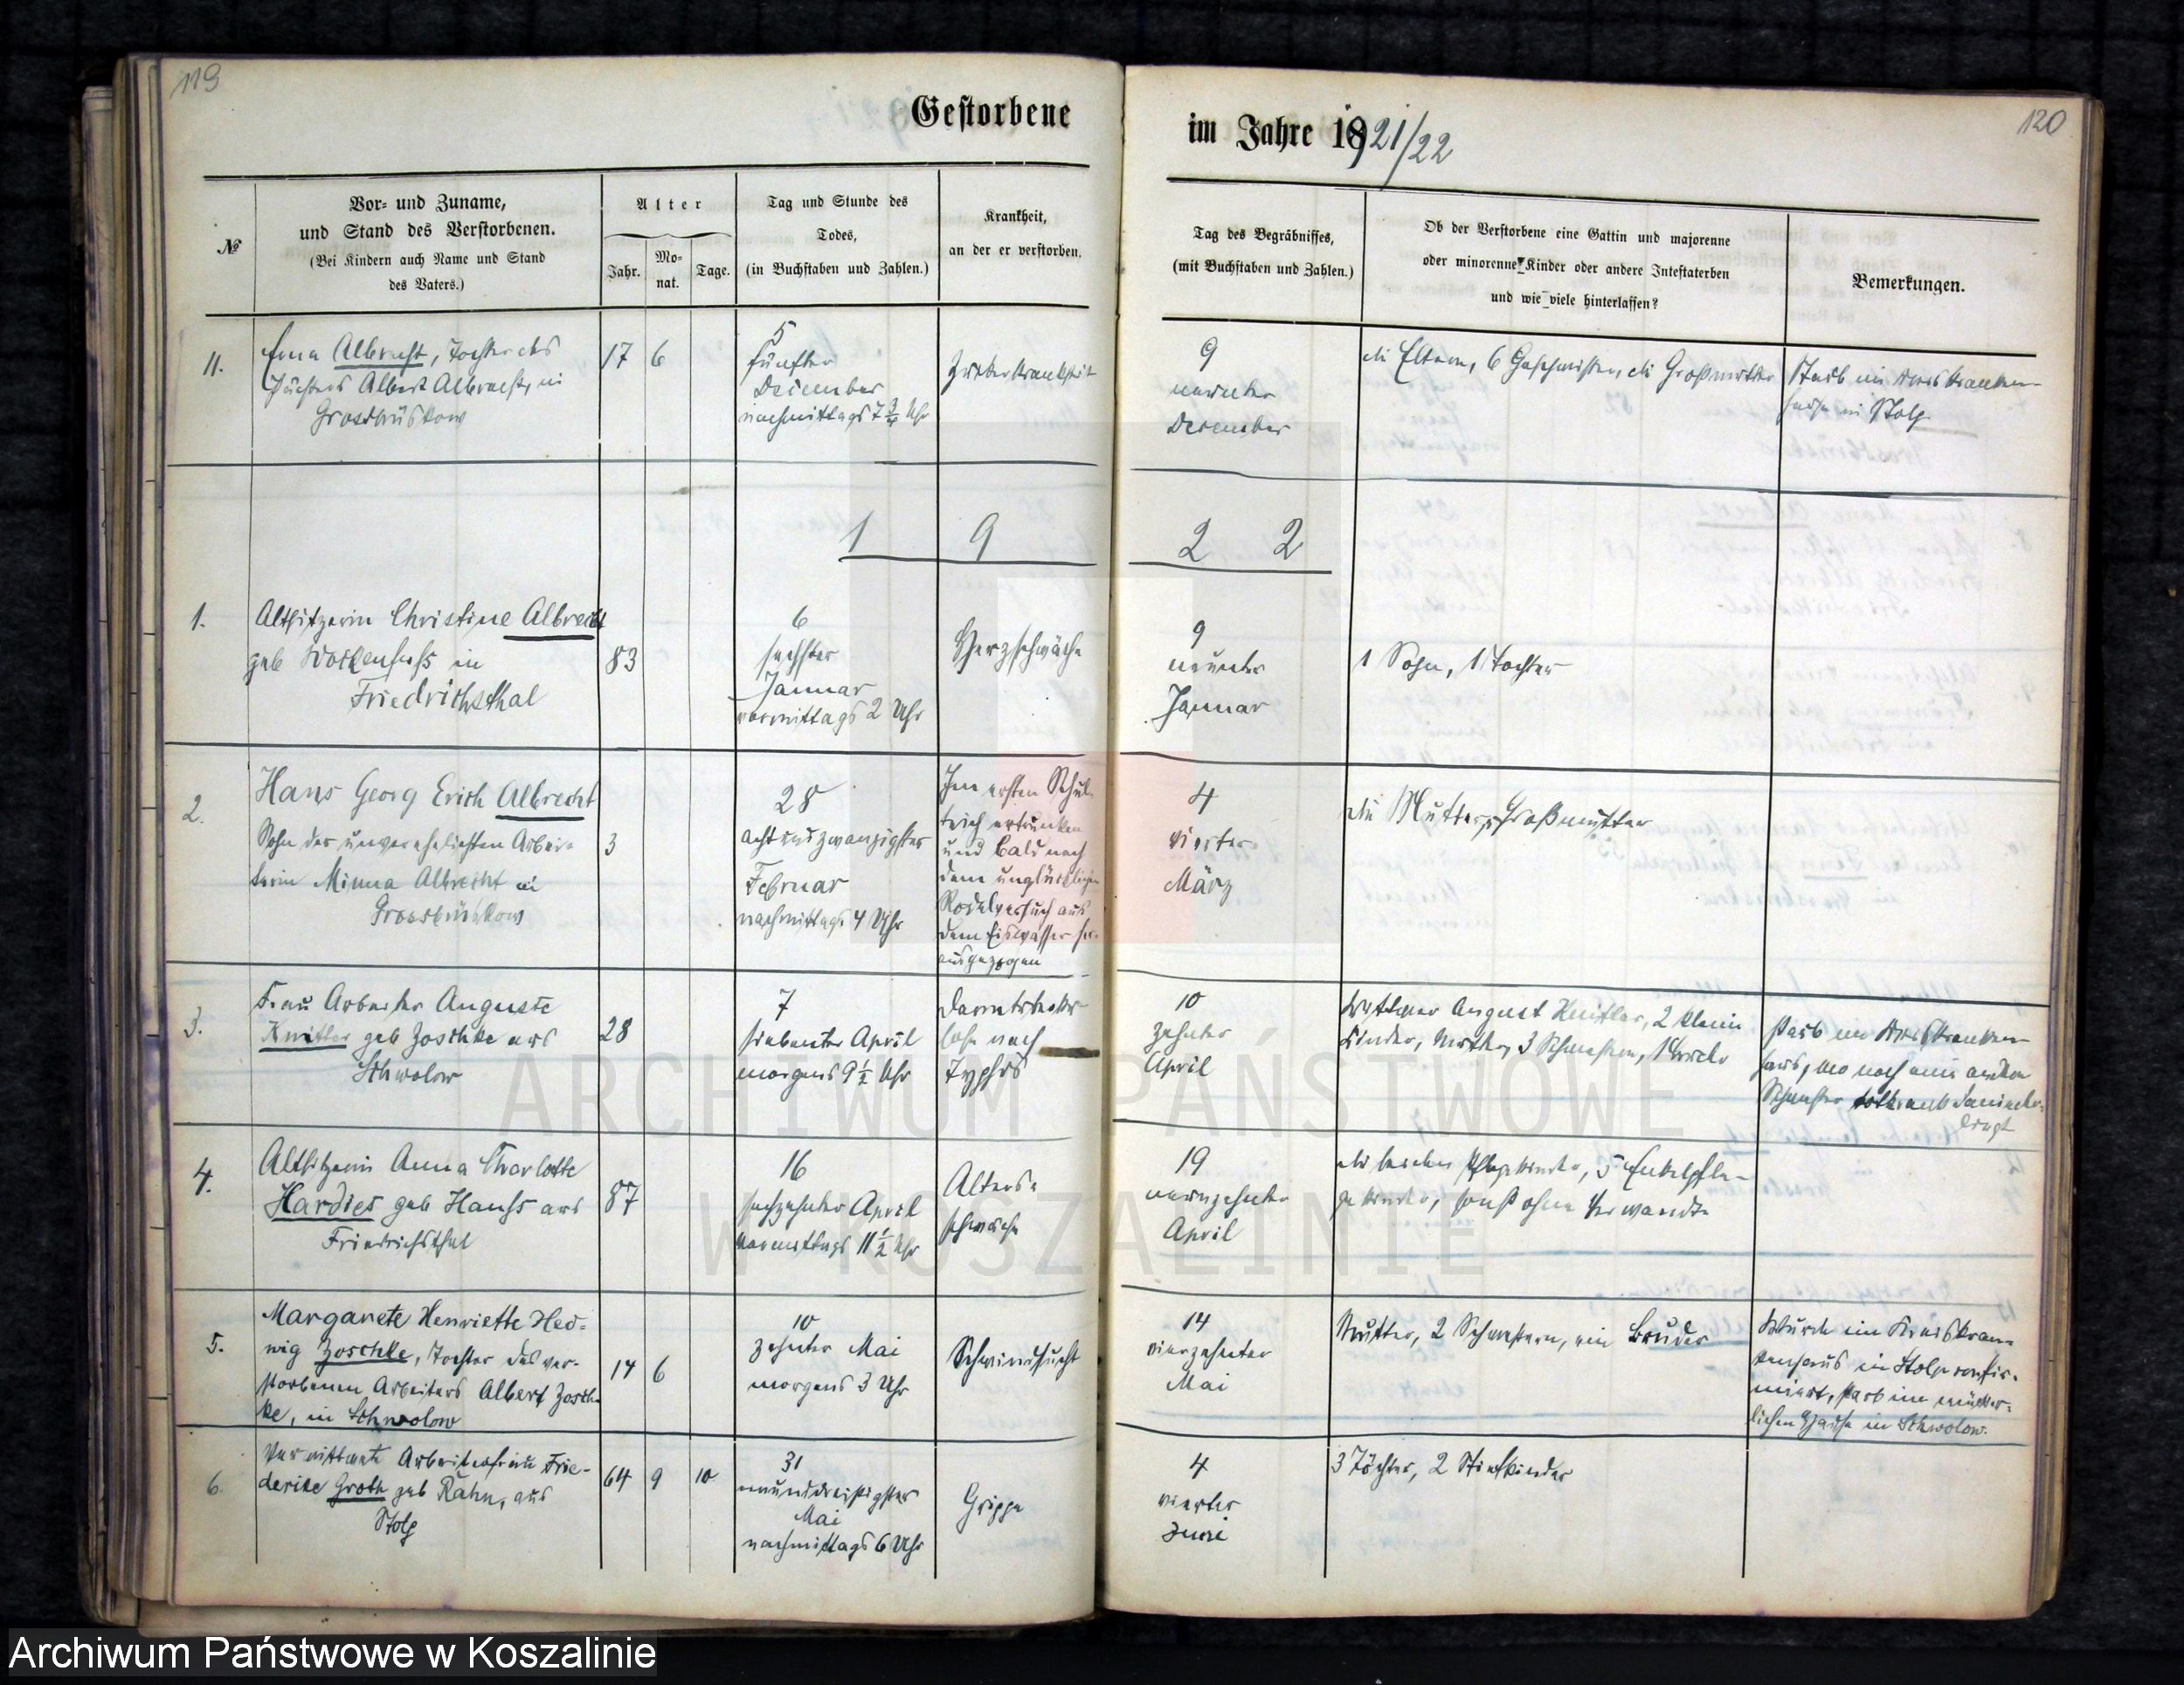 119
Gestorbene
№
Vor= und Zuname,
und Stand des Verstorbenen.
(Bei Kindern auch Name und Stand
des Vaters.)
Alter
Jahr.
Mo=
nat.
Tage.
Tag und Stunde des
Todes,
(in Buchstaben und Zahlen.)
Krankheit,
an der er verstorben.
im Jahre 1921/22
120
Tag des Begräbnisses,
(mit Buchstaben und Zahlen.)
Ob der Verstorbene eine Gattin und majorenne
oder minorenne Kinder oder andere Intestaterben
und wie viele hinterlassen?
Bemerkungen.
11.
Erna Albrecht, Tochter des
Albert Albrecht, in
Grossbrüskow
17
6
5
fünfter
Dezember
nachmittags 7 3/4 Uhr
Zuckerkrankheit
9
neunter
Dezember
die Eltern, 6 Geschwister, die Großmutter
Starb im Kreiskranken-
hause in Stolp
1 9 2 2
1.
Altsitzerin Christine Albrecht
geb in
Friedrichsthal
83
6
sechster
Januar
vormittags 2 Uhr
Herzschwäche
9
neunter
Januar
1 Sohn, 1 Tochter
2.
Hans Georg Erich Albrecht
Sohn der unverehelichten Arbei-
terin Minna Albrecht in
Grossbrüskow
3
28
achtundzwanzigster
Februar
nachmittags 4 Uhr
Im ersten Schul-
teich ertrunken
und bald nach
dem unglücklichen
Rodelversuch aus
dem Eiswasser her-
ausgezogen
4
vierter
März
die Mutter, Großmutter
3.
Frau Arbeiter Auguste
Knitter geb Zoschke aus
Schwolow
28
7
siebenter April
morgens 9 1/2 Uhr
nach
Typhus
10
zehnter
April
Wittwer August Knitter, 2 kleine
Kinder, Mutter, 3 Schwestern, 1 Bruder
starb im Kreiskranken-
haus, wo noch eine andere
Schwester
4.
Altsitzerin Anna Charlotte
Hardies geb Hauss aus
Friedrichsthal
87
16
sechzehnter April
vormittags 11 1/2 Uhr
Alters-
schwäche
19
neunzehnter
April
die beiden Pflegekinder, 5 Enkelpfle-
gekinder, sonst ohne Verwandte
5.
Margarete Henriette Hed-
wig Zoschke, Tochter des ver-
storbenen Arbeiters Albert Zosch-
ke, in Schwolow
14
6
10
zehnter Mai
morgens 3 Uhr
Schwindsucht
14
vierzehnter
Mai
Mutter, 2 Schwestern, ein Bruder
Wurde im Kreiskran-
kenhaus in Stolp konfir-
miert, starb im mütter-
lichen Hause in Schwolow.
6.
Verwittwete Arbeiterfrau Frie-
derike Groth geb Rahn, aus
Stolp
64
9
10
31
einunddreißigster
Mai
nachmittags 6 Uhr
Grippe
4
vierter
Juni
3 Töchter, 2 Stiefkinder
ARCHIWUM PAŃSTWOWE
W KOSZALINIE
Archiwum Państwowe w Koszalinie